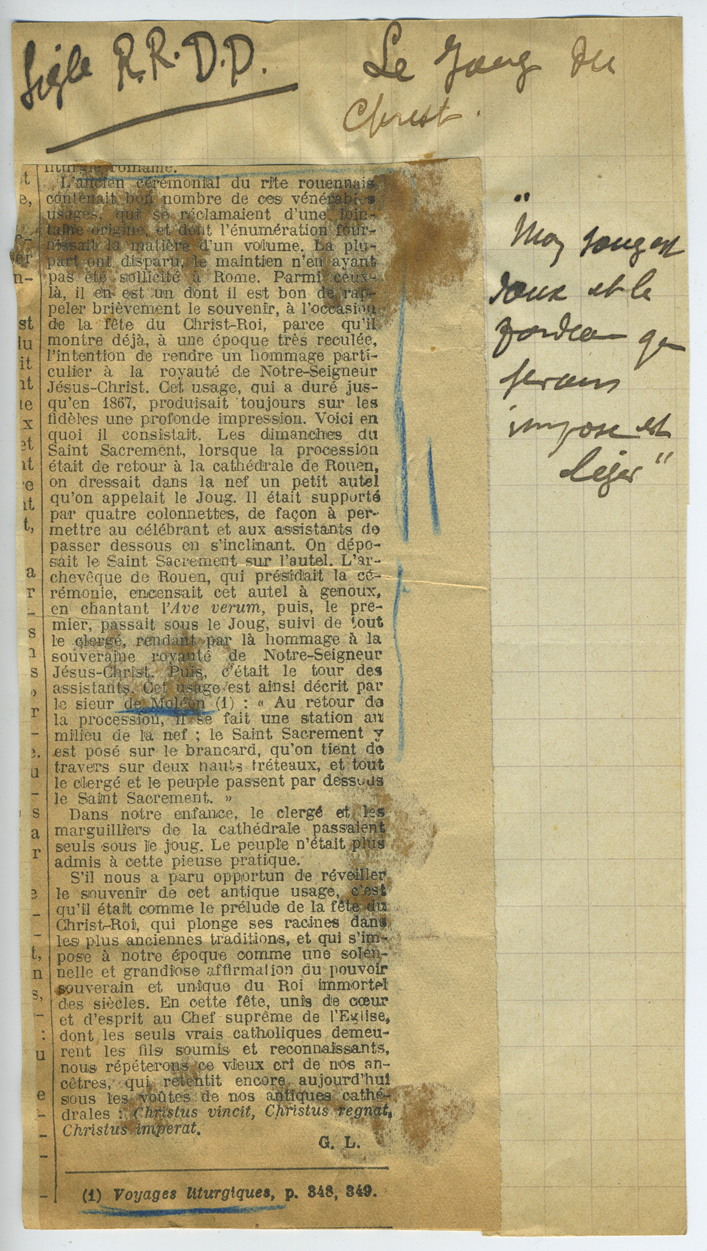 Sigle R.R.D.D.
Le Joug du
Christ.
"Mon joug est
doux et le
fardeau que
impose est
léger"
liturgie romaine.
L'ancien cérémonial du rite rouennais
contenait bon nombre de ces vénérables
usages, qui se réclamaient d'une loin-
taine origine, et dont l'énumération four-
nissait la matière d'un volume. La plu-
part ont disparu, le maintien n'en ayant
pas été sollicité à Rome. Parmi ceux-
là, il en est un dont il est bon de rap-
peler brièvement le souvenir, à l'occasion
de la fête du Christ-Roi, parce qu'il
montre déjà, à une époque très reculée,
l'intention de rendre un hommage parti-
culier à la royauté de Notre-Seigneur
Jésus-Christ. Cet usage, qui a duré jus-
qu'en 1867, produisait toujours sur les
fidèles une profonde impression. Voici en
quoi il consistait. Les dimanches du
Saint Sacrement, lorsque la procession
était de retour à la cathédrale de Rouen,
on dressait dans la nef un petit autel
qu'on appelait le Joug. Il était supporté
par quatre colonnettes, de façon à per-
mettre au célébrant et aux assistants de
passer dessous en s'inclinant. On dépo-
sait le Saint Sacrement sur l'autel. L'ar-
chevêque de Rouen, qui présidait la cé-
rémonie, encensait cet autel à genoux,
en chantant l'Ave verum, puis, le pre-
mier, passait sous le Joug, suivi de tout
le clergé, rendant par là hommage à la
souveraine royauté de Notre-Seigneur
Jésus-Christ. Puis, c'était le tour des
assistants. Cet usage est ainsi décrit par
le sieur de Moléon (1) : « Au retour de
la procession, il se fait une station au
milieu de la nef ; le Saint Sacrement y
est posé sur le brancard, qu'on tient de
travers sur deux hauts tréteaux, et tout
le clergé et le peuple passent par dessous
le Saint Sacrement. »
Dans notre enfance, le clergé et les
marguilliers de la cathédrale passaient
seuls sous le joug. Le peuple n'était plus
admis à cette pieuse pratique.
S'il nous a paru opportun de réveiller
le souvenir de cet antique usage, c'est
qu'il était comme le prélude de la fête du
Christ-Roi, qui plonge ses racines dans
les plus anciennes traditions, et qui s'im-
pose à notre époque comme une solen-
nelle et grandiose affirmation du pouvoir
souverain et unique du Roi immortel
des siècles. En cette fête, unis de cœur
et d'esprit au Chef suprême de l'Eglise,
dont les seuls vrais catholiques demeu-
rent les fils soumis et reconnaissants,
nous répéterons ce vieux cri de nos an-
cêtres, qui retentit encore aujourd'hui
sous les voûtes de nos antiques cathé-
drales : Christus vincit, Christus regnat,
Christus imperat.
G. L.
(1) Voyages liturgiques, p. 348, 349.